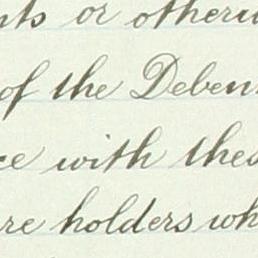 nts or otherw
of the Deben
ce with thes
re holders wh